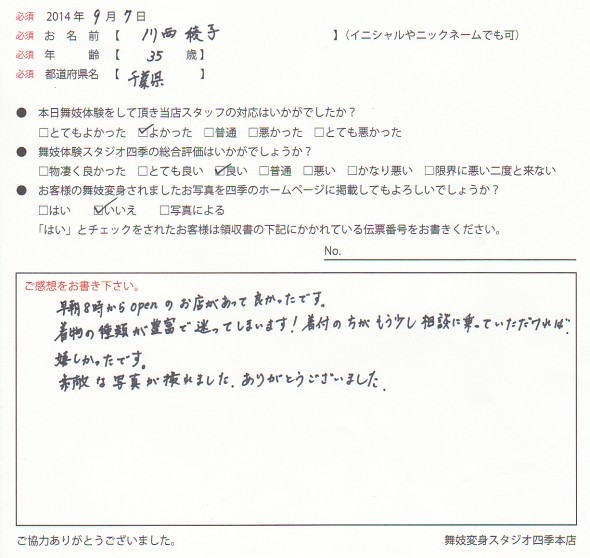 必須 2014年 9月 7日
必須 お名前【 川西 稜子 】(イニシャルやニックネームでも可)
必須 年齢【 35 歳】
必須 都道府県名【 千葉県 】
● 本日舞妓体験をして頂き当店スタッフの対応はいかがでしたか?
□とてもよかった ☑よかった □普通 □悪かった □とても悪かった
● 舞妓体験スタジオ四季の総合評価はいかがでしょうか?
□物凄く良かった □とても良い ☑良い □普通 □悪い □かなり悪い □限界に悪い二度と来ない
● お客様の舞妓変身されましたお写真を四季のホームページに掲載してもよろしいでしょうか?
□はい ☑いいえ □写真による
「はい」とチェックをされたお客様は領収書の下記にかかれている伝票番号をお書きください。
No.
ご感想をお書き下さい。
早朝8時からopenのお店があって良かったです。
着物の種類が豊富で迷ってしまいます!着付の方がもう少し相談に乗っていただければ
嬉しかったです。
素敵な写真が撮れました。ありがとうございました。
ご協力ありがとうございました。
舞妓変身スタジオ四季本店